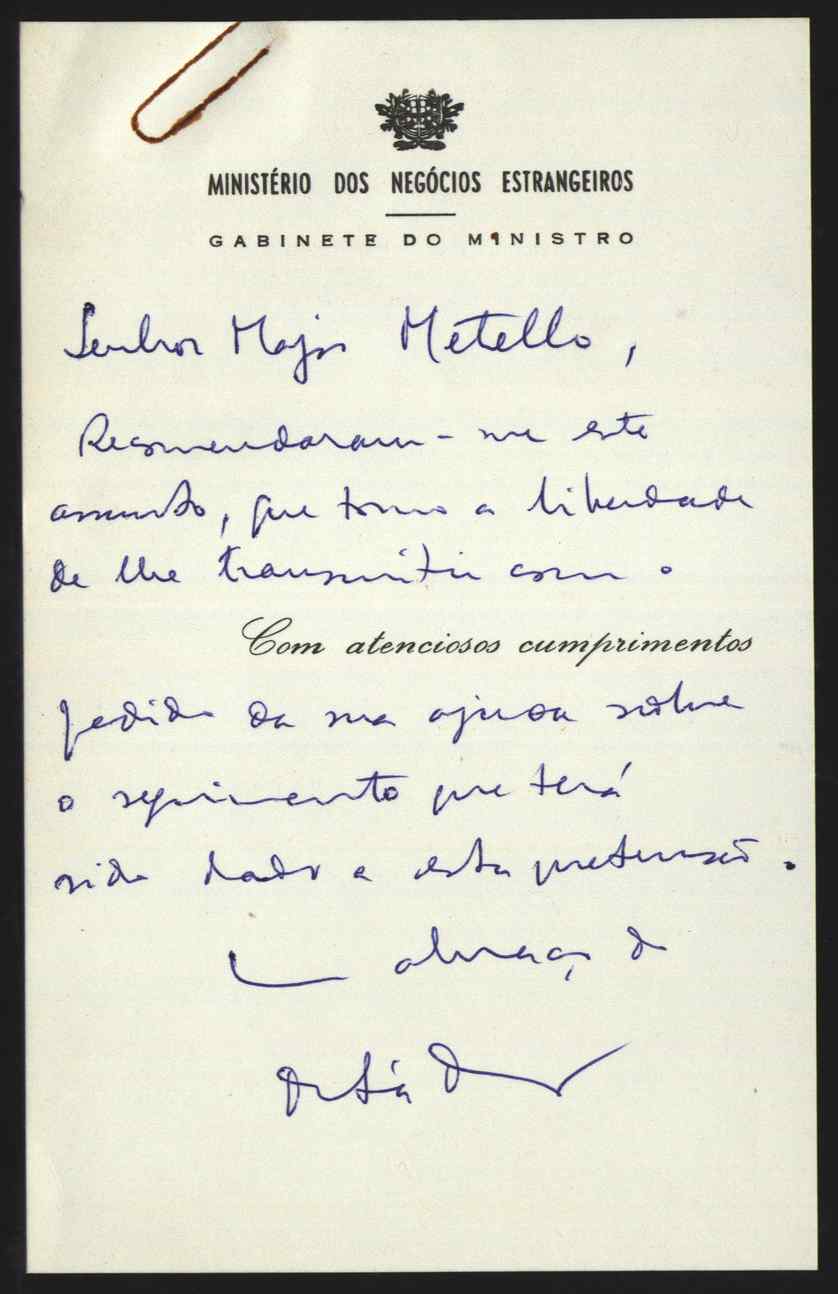 MINISTÉRIO DOS NEGÓCIOS ESTRANGEIROS
GABINETE DO MINISTRO
Senhor Major Metello,
Recomendaram-me este
assunto, que tomo a liberdade
de lhe transmitir com o
Com atenciosos cumprimentos
pedido da sua ajuda sobre
o seguimento que terá
sido dado a esta pretensão.
Um abraço do